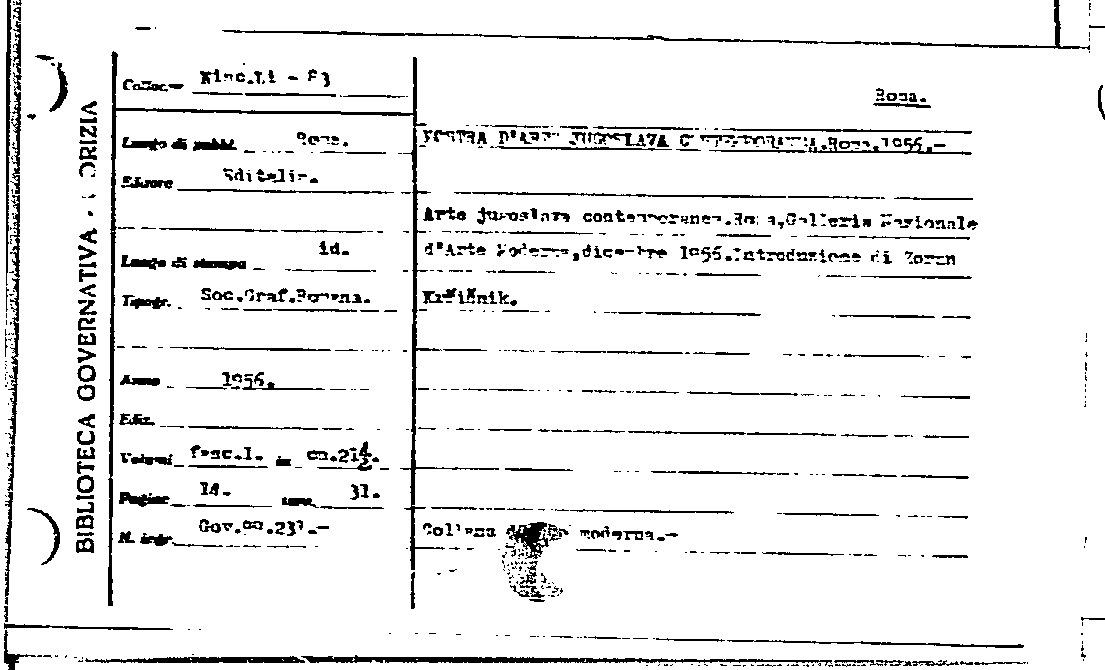 BIBLIOTECA GOVERNATIVA - GORIZIA
Colloc.ne Misc.Li - 83
Roma.
Luogo di pubbl. Roma.
MOSTRA D'ARTE JUGOSLAVA CONTEMPORANEA.Roma.1956.—
Editore Editalia.
Arte jugoslava contemporanea.Roma,Galleria Nazionale
Luogo di stampa id.
d'Arte Moderna,dicembre 1956.Introduzione di Zoran
Tipogr. Soc.Graf.Romana.
Kržišnik.
Anno 1956.
Ediz.
Volumi fasc.1. in cm.21½.
Pagine 14. tavv. 31.
N. ingr. Gov. 237.—
Collana moderna.—